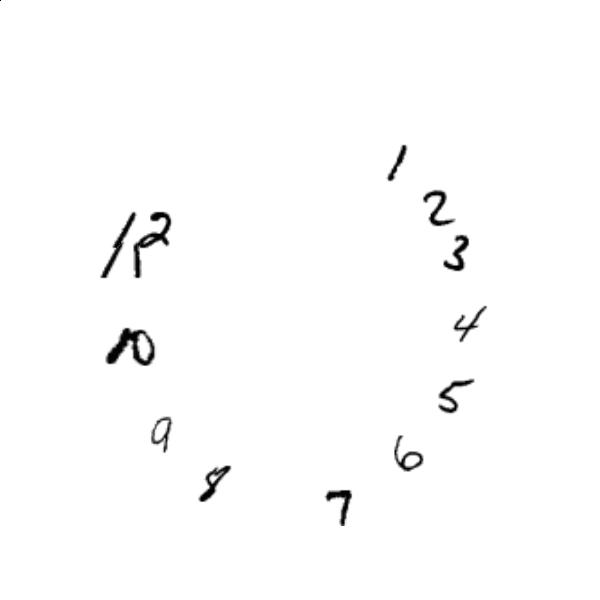 12
1
2
3
4
5
6
7
8
9
10
11